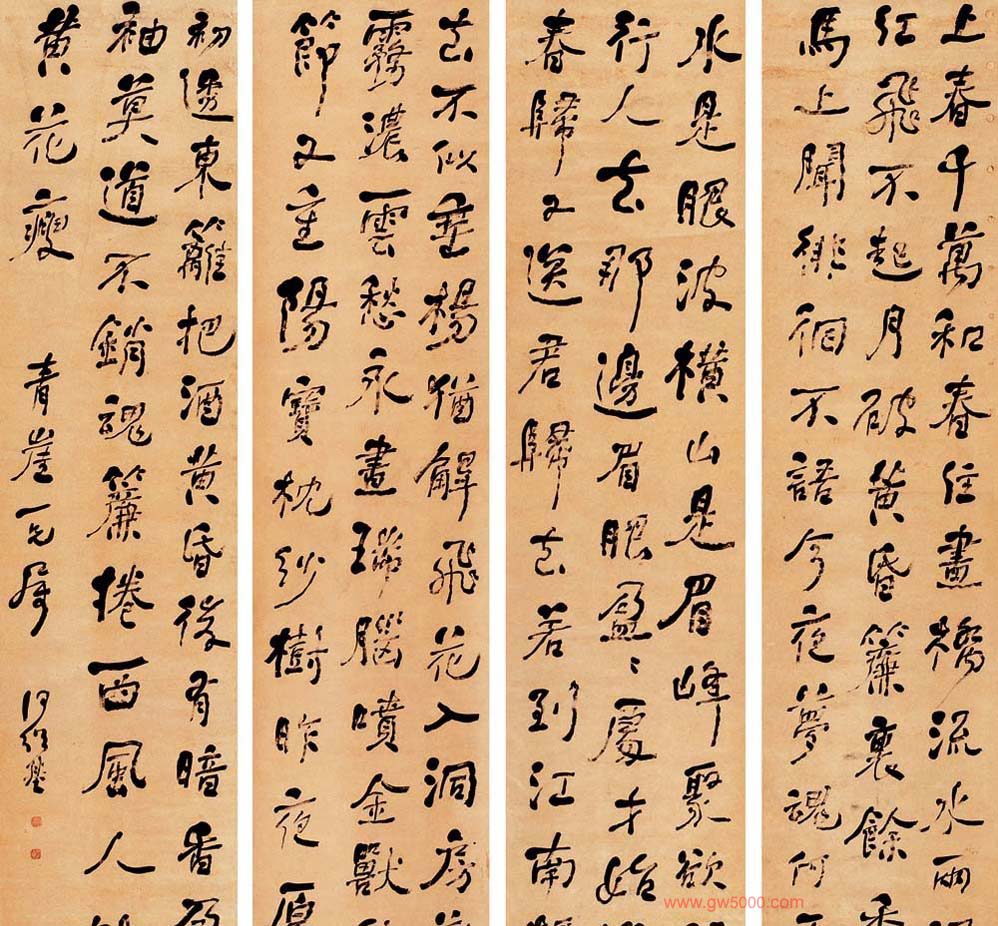 上春千萬和春住畫橋流水雨
紅飛不起月破黃昏簾裏餘香
馬上聞徘徊不語今夜夢魂何
水是眼波橫山是眉峰聚欲
行人去那邊眉眼盈〻處才始
春歸又送君歸去若到江南
去不似垂楊猶解飛花入洞房
霧濃雲愁永晝瑞腦噴金獸
節又重陽寶枕紗樹昨夜
初透東籬把酒黃昏後有暗香盈
袖莫道不銷魂簾捲西風人
黃花瘦
青崖一兄屬
何紹基
www.gw5000.com